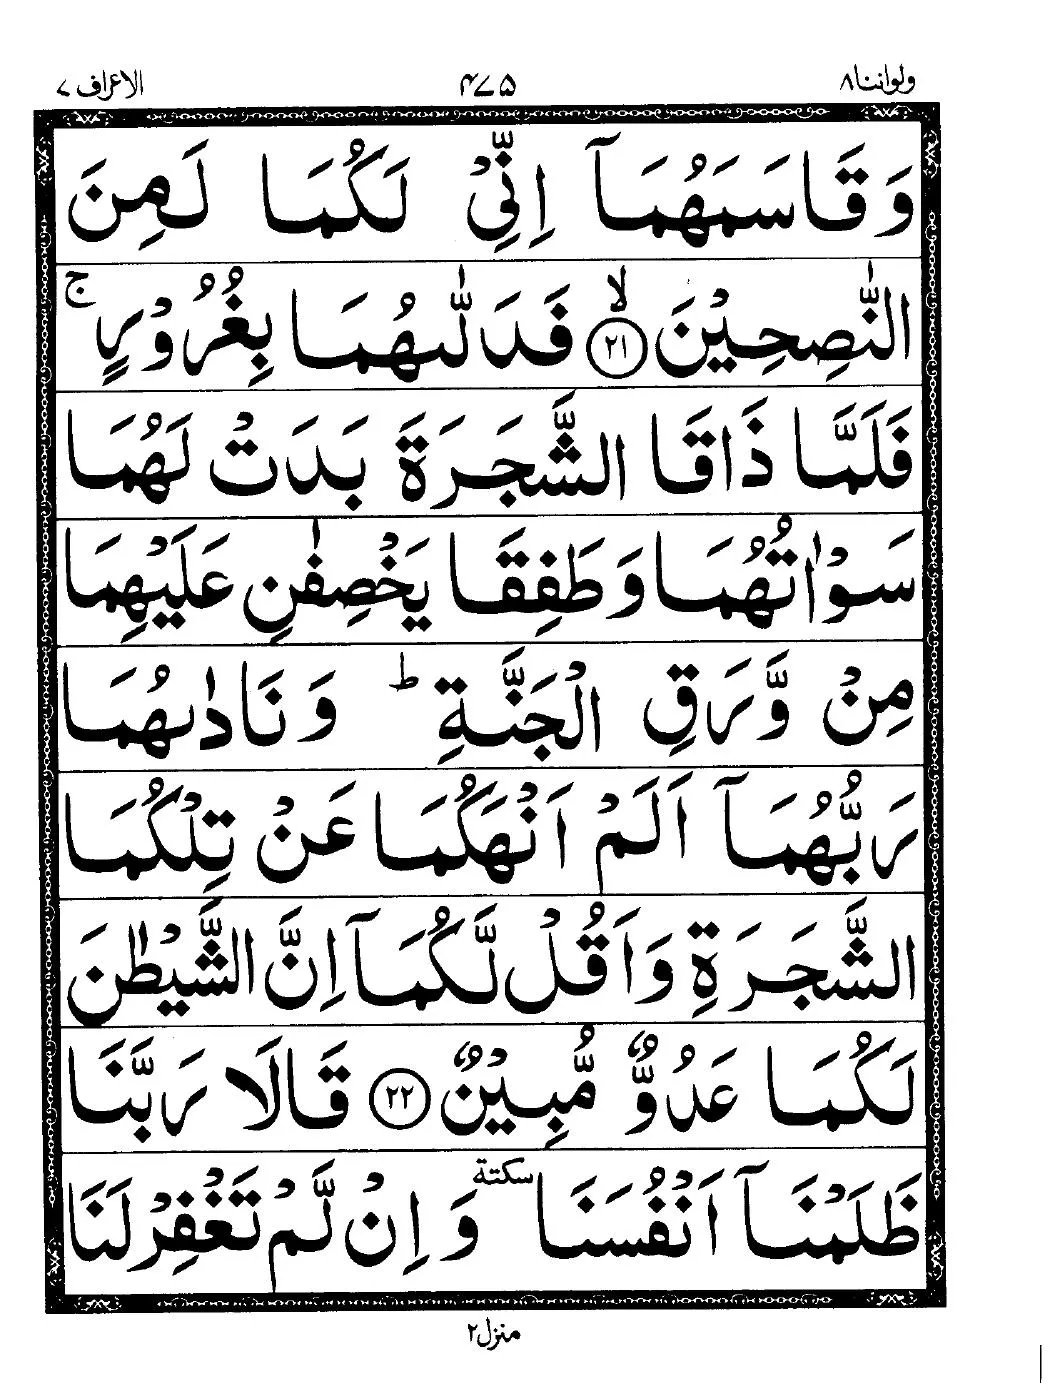 ولواننا۸ ۴۷۵ الاعراف ۷
وَ قَاسَمَهُمَاۤ اِنِّیْ لَكُمَا لَمِنَ
النّٰصِحِیْنَ ﴿۲۱﴾ۙ فَدَلّٰىهُمَا بِغُرُوْرٍ ۚ
فَلَمَّا ذَاقَا الشَّجَرَةَ بَدَتْ لَهُمَا
سَوْاٰتُهُمَا وَ طَفِقَا یَخْصِفٰنِ عَلَیْهِمَا
مِنْ وَّرَقِ الْجَنَّةِ ؕ وَ نَادٰىهُمَا
رَبُّهُمَاۤ اَلَمْ اَنْهَكُمَا عَنْ تِلْكُمَا
الشَّجَرَةِ وَ اَقُلْ لَّكُمَاۤ اِنَّ الشَّیْطٰنَ
لَكُمَا عَدُوٌّ مُّبِیْنٌ ﴿۲۲﴾ قَالَا رَبَّنَا
ظَلَمْنَاۤ اَنْفُسَنَا سكتة وَ اِنْ لَّمْ تَغْفِرْ لَنَا
منزل۲